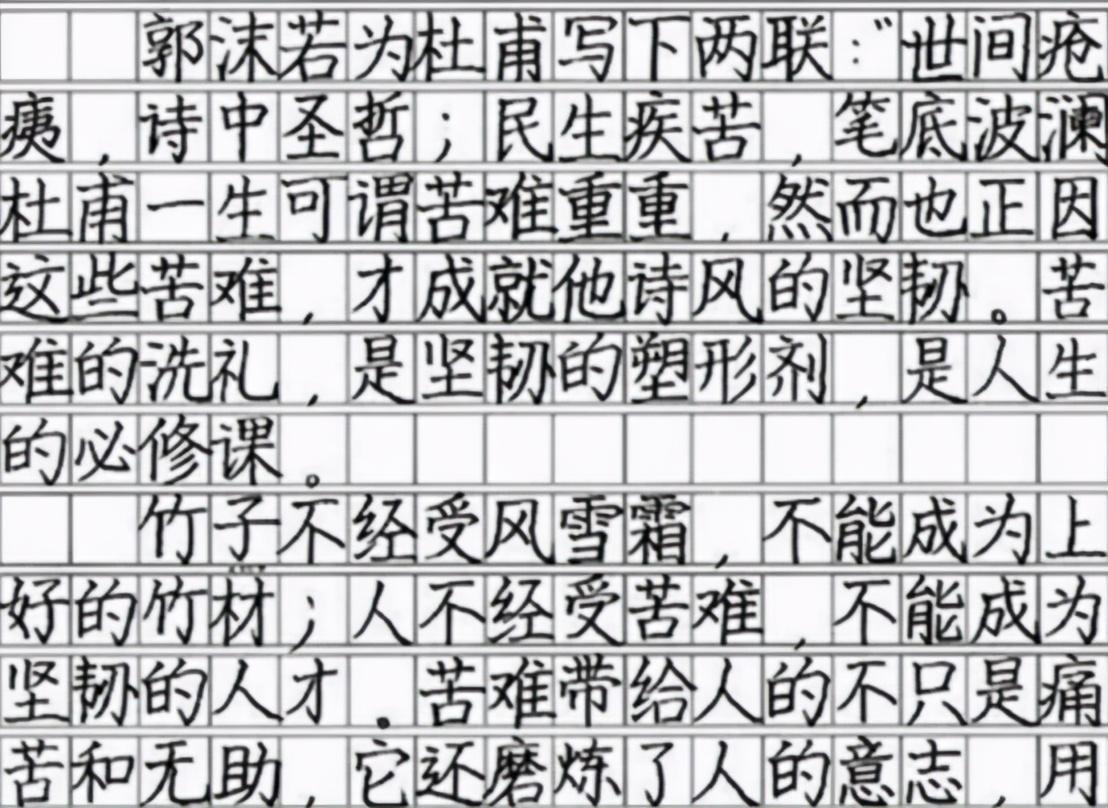 郭沫若为杜甫写下两联："世间疮
痍，诗中圣哲；民生疾苦，笔底波澜
杜甫一生可谓苦难重重，然而也正因
这些苦难，才成就他诗风的坚韧。苦
难的洗礼，是坚韧的塑形剂，是人生
的必修课。
竹子不经受风雪霜，不能成为上
好的竹材；人不经受苦难，不能成为
坚韧的人才。苦难带给人的不只是痛
苦和无助，它还磨炼了人的意志，用